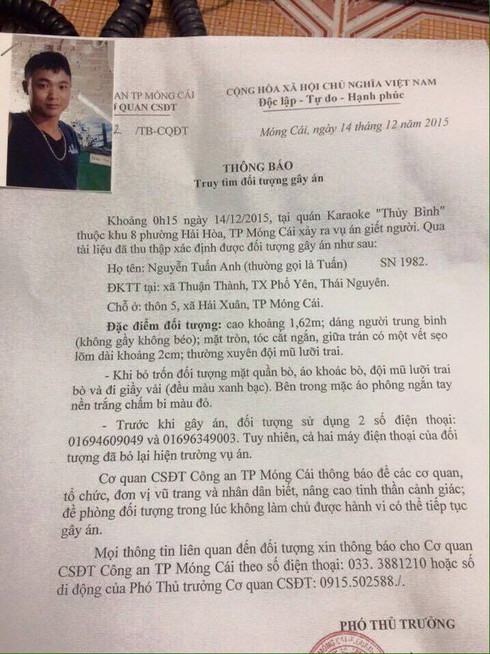 AN TP MÓNG CÁI
CỘNG HÒA XÃ HỘI CHỦ NGHĨA VIỆT NAM
QUAN CSĐT
Độc lập - Tự do - Hạnh phúc
/TB-CQĐT
Móng Cái, ngày 14 tháng 12 năm 2015
THÔNG BÁO
Truy tìm đối tượng gây án
Khoảng 0h15 ngày 14/12/2015, tại quán Karaoke "Thủy Bình"
thuộc khu 8 phường Hải Hòa, TP Móng Cái xảy ra vụ án giết người. Qua
tài liệu đã thu thập xác định được đối tượng gây án như sau:
Họ tên: Nguyễn Tuấn Anh (thường gọi là Tuấn) SN 1982.
ĐKTT tại: xã Thuận Thành, TX Phổ Yên, Thái Nguyên.
Chỗ ở: thôn 5, xã Hải Xuân, TP Móng Cái.
Đặc điểm đối tượng: cao khoảng 1,62m; dáng người trung bình
(không gầy không béo); mặt tròn, tóc cắt ngắn, giữa trán có một vết sẹo
lõm dài khoảng 2cm; thường xuyên đội mũ lưỡi trai.
- Khi bỏ trốn đối tượng mặt quần bò, áo khoác bò, đội mũ lưỡi trai
bò và đi giầy vải (đều màu xanh bạc). Bên trong mặc áo phông ngắn tay
nền trắng chấm bi màu đỏ.
- Trước khi gây án, đối tượng sử dụng 2 số điện thoại:
01694609049 và 01696349003. Tuy nhiên, cả hai máy điện thoại của đối
tượng đã bỏ lại hiện trường vụ án.
Cơ quan CSĐT Công an TP Móng Cái thông báo để các cơ quan,
tổ chức, đơn vị vũ trang và nhân dân biết, nâng cao tinh thần cảnh giác;
đề phòng đối tượng trong lúc không làm chủ được hành vi có thể tiếp tục
gây án.
Mọi thông tin liên quan đến đối tượng xin thông báo cho Cơ quan
CSĐT Công an TP Móng Cái theo số điện thoại: 033. 3881210 hoặc số
di động của Phó Thủ trưởng Cơ quan CSĐT: 0915.502588./.
PHÓ THỦ TRƯỞNG